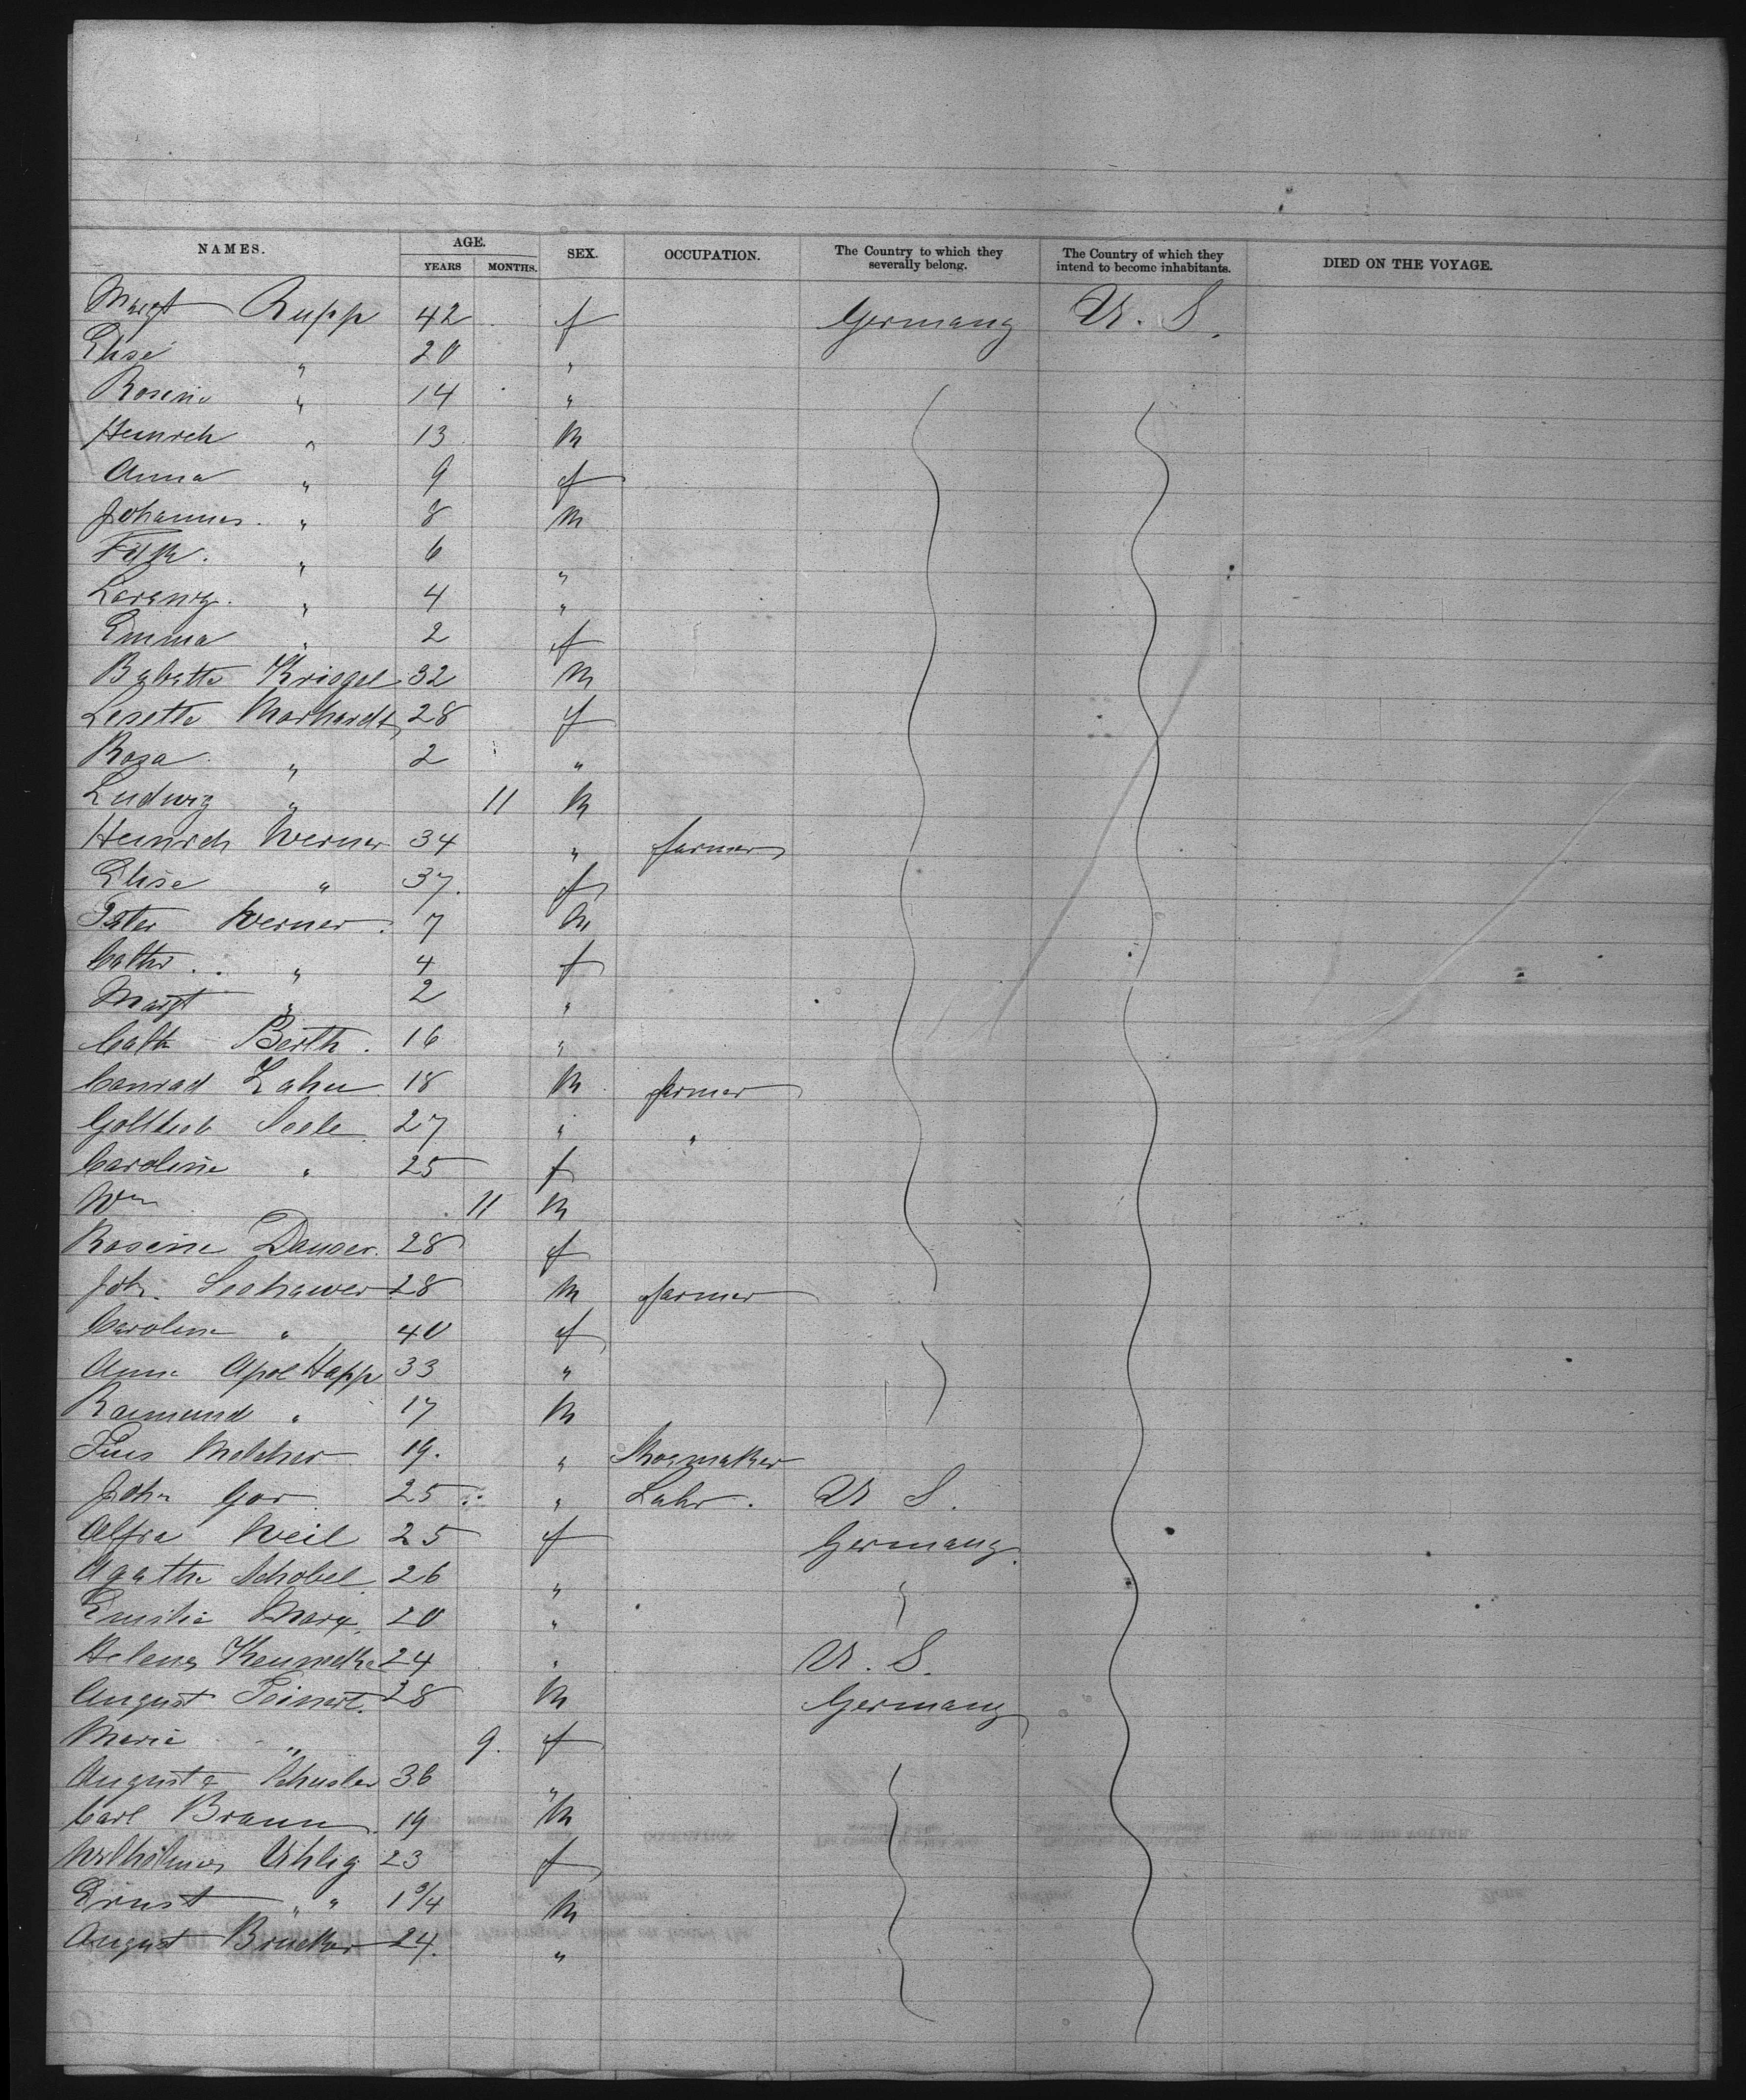 NAMES. AGE. SEX. OCCUPATION. The Country to which they severally belong. The Country of which they intend to become inhabitants. DIED ON THE VOYAGE.
YEARS MONTHS.
Margt Rupp 42 f Germany U. S.
Elise " 20 "
Rosine " 14 "
Heinrch " 13 m
Anna " 9 f
Johannes. " 8 m
" 6 "
Lorenz. " 4 "
Emma " 2 f
Babette Kriegel 32 m
Lisette Marhardt 28 f
Rosa " 2 "
Ludwig " 11 m
Heinrch Werner 34 " farmer
Elise " 37. f
Peter Werner. 7 m
Cathr.. " 4 f
Margt " 2 "
Cath Berth. 16 "
Conrad Zahn 18 m farmer
Gottlieb Seele 27 " "
Caroline " 25 f
Wm 11 m
Rosine Danser. 28 f
Joh. Seehawer 28 m farmer
Caroline " 40 f
Anna Apol Happ 33 "
Raimund " 17 m
Pius Melcher 19. " Shoemaker
John Gor 25 " Labr. U S.
Alfra Weil 25 f Germany.
Agathe Schobel 26 "
Emilie Marx. 20 "
Helena 24 " U. S.
August Peinert. 28 m Germany
Marie " 9. f
Augusta Schuster 36 "
Carl Braun 19 m
Wilhelmine Uhlig 23 f
Ernst " " 1 3/4 m
August Brucker 24. "